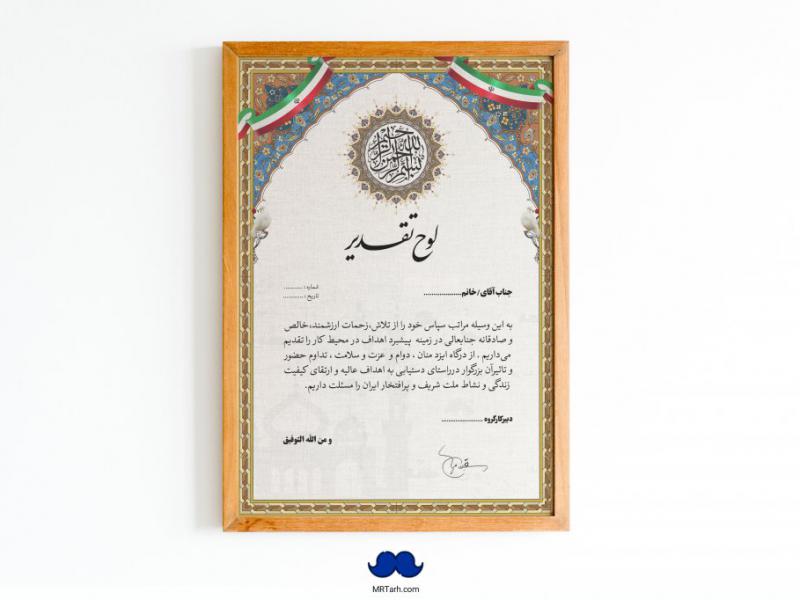 بسم الله الرحمن الرحیم
لوح تقدیر
شماره : ...........
تاریخ : ............
جناب آقای/ خانم...................
به این وسیله مراتب سپاس خود را از تلاش،زحمات ارزشمند،خالص
و صادقانه جنابعالی در زمینه پیشبرد اهداف در محیط کار را تقدیم
می‌داریم ، از درگاه ایزد منان ، دوام و عزت و سلامت ، تداوم حضور
و تاثیرآن بزرگوار درراستای دستیابی به اهداف عالیه و ارتقای کیفیت
زندگی و نشاط ملت شریف و پرافتخار ایران را مسئلت داریم.
دبیرکارگروه .....................
و من الله التوفیق
MRTarh.com